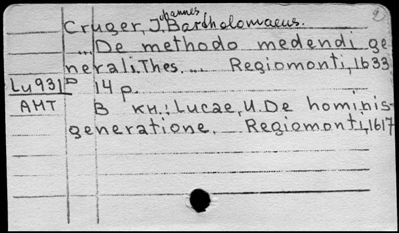 Cruger, Johannes Bartholomaeus.
..De methodo medendi ge
nerali. Thes. ... Regiomonti, 1633
Lu931 P 14 p.
AMT В кн.: Lucae, U. De hominis
generatione. Regiomonti, 1617